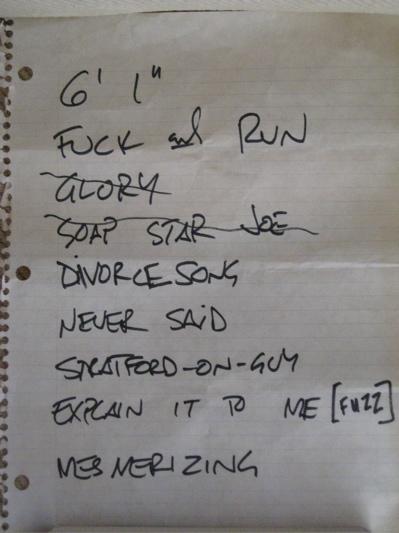 6' 1"
FUCK and RUN
GLORY
SOAP STAR JOE
DIVORCE SONG
NEVER SAID
STRATFORD-ON-GUY
EXPLAIN IT TO ME [FUZZ]
MESMERIZING